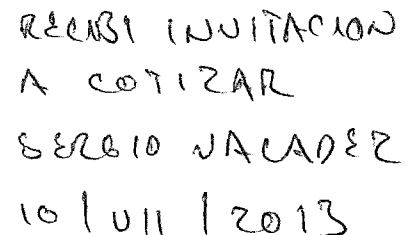 RECIBI INVITACION
A COTIZAR
SERGIO VALADEZ
10 / VII / 2013